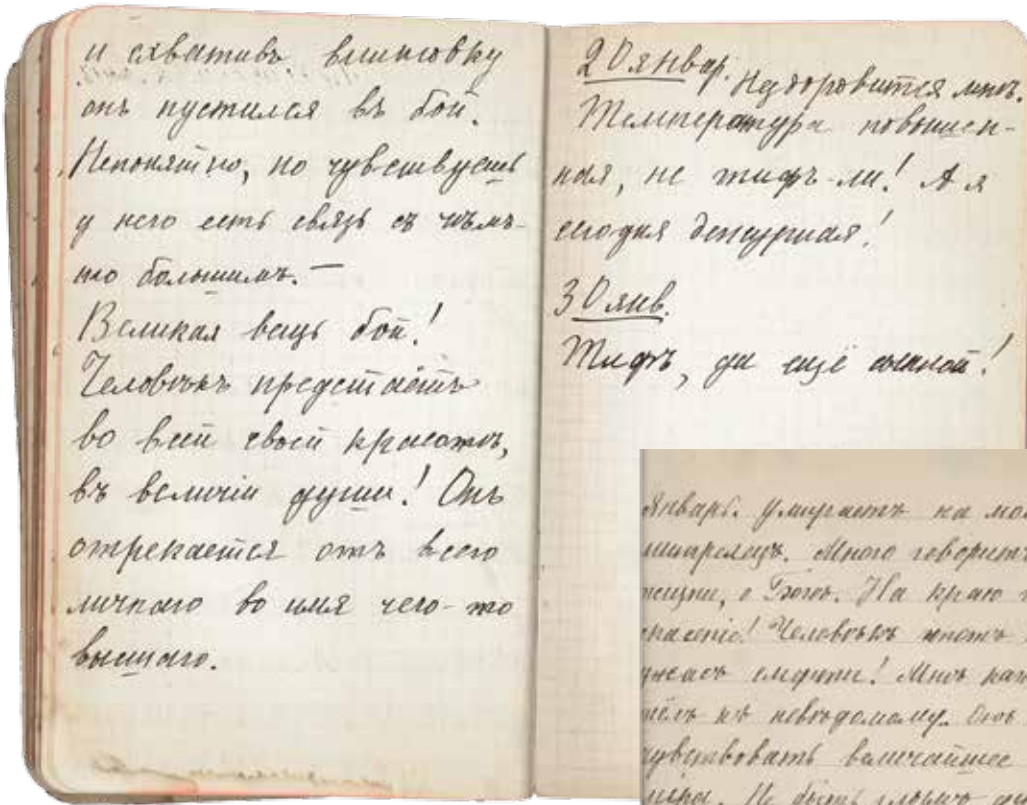 и схвативъ винтовку
онъ пустился въ бой.
Непонятно, но чувствуешь
у него есть связь съ чѣмъ-
то большимъ. —
Великая вещь бой!
Человѣкъ предстаётъ
во всей своей красотѣ,
въ величіи души! Онъ
отрекается отъ всего
личнаго во имя чего-то
высшаго.
20 январ. Нездоровится мнѣ.
Температура повышен-
ная, не тифъ-ли! А я
сегодня дежурная!
30 янв.
Тифъ, да ещё сыпной!
Январь. Умираетъ на мо
Много говоритъ
жизни, о Богѣ. На краю
Человѣкъ этотъ
ужасъ смерти! Мнѣ каж
къ невѣдомому. Онъ
чувствовать величайшее
мира. Не быть